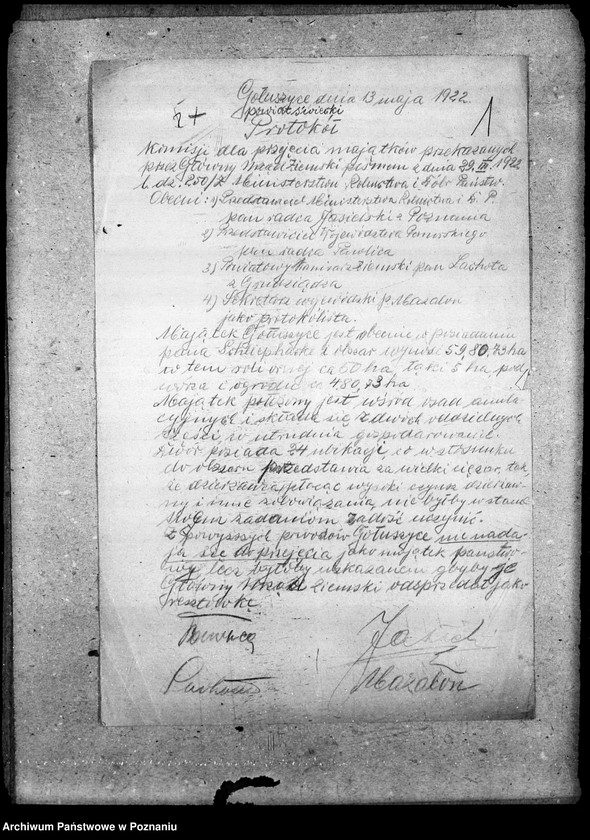 Gołuszyce dnia 13 maja 1922.
powiat świecki
1
Protokół
Komisji dla przyjęcia majątków przekazanych
przez Główny Urząd Ziemski pismem z dnia 29. III. 1922
Ministerstwu Rolnictwa i Dóbr Państw.
Obecni: 1) Przedstawiciel Ministerstwa Rolnictwa i D. P.
pan radca z Poznania
2) Przedstawiciel Województwa Pomorskiego
pan radca
3) Powiatowy Komisarz Ziemski pan Lachota
z Grudziądza
4) Sekretarz wojewódzki p. Mazalon
jako protokolista.
Majątek Gołuszyce jest obecnie w posiadaniu
pana obszar wynosi 59,80,73 ha
w tem roli ornej ca 50 ha, łąki 5 ha, pod
wórza i ogrodu ca 480,73 ha
Majątek położony jest wśród osad anula
cyjnych i składa się z dwóch oddzielnych
części, co utrudnia gospodarowanie.
Dwór posiada 24 ubikacji, co w stosunku
do obszaru przedstawia za wielki ciężar, tak,
że dzierżawca płacąc wysoki czynsz dzierżaw
ny i inne zobowiązania, nie byłby w stanie
swoim zadaniom zadość uczynić.
Z powyższych powodów Gołuszyce nie nada
ją się do przyjęcia jako majątek państwo-
wy lecz byłoby wskazanem gdyby je
Główny Urząd Ziemski odsprzedał jako
resztówkę.
Mazalon
Archiwum Państwowe w Poznaniu